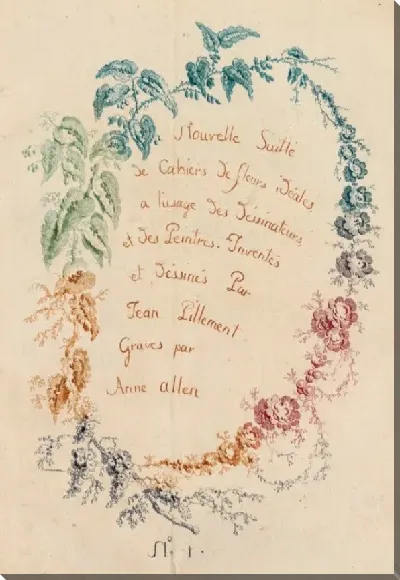 Nouvelle Suitte
de Cahiers de fleurs idéales
a l'usage des dessinateurs
et des Peintres. Inventés
et dessinés Par
Jean Pillement
Graves par
Anne allen
N.º 1.